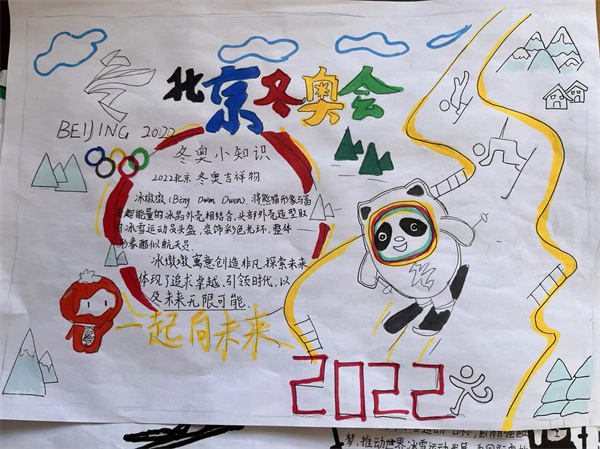 北京冬奥会
BEIJING 2022
冬奥小知识
2022北京 冬奥吉祥物
冰墩墩(Bing Dwen Dwen),将熊猫形象与富
超能量的冰晶外壳相结合,头部外壳造型取
自冰雪运动头盔,装饰彩色光环,整体
形象酷似航天员。
冰墩墩寓意创造非凡、探索未来
体现了追求卓越、引领时代,以
及未来无限可能.
一起向未来
2022
梦,推动世界冰雪运动发展,为国际奥林